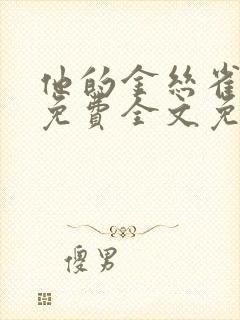 他的金丝雀
免費全文免
傻男